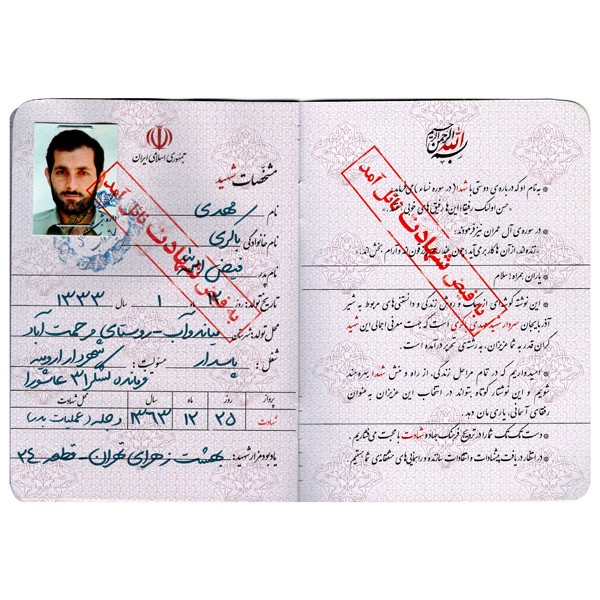 بسم الله الرحمن الرحیم
به نام او که درباره‌ی دوستی با شهدا (در سوره نساء) می‌فرماید:
حسن اولئک رفیقا؛ این‌ها رفیق‌های خوبی هستند
در سوره‌ی آل عمران نیز فرمودند:
یاران همراه؛ سلام
این نوشته گوشه‌ای از سبک و روش زندگی و دانستنی‌های مربوط به شیر
آذربایجان سردار شهید مهدی باکری است که جهت معرفی اجمالی این شهید
گران‌قدر به شما عزیزان، به رشته‌ی تحریر درآمده است
امیدواریم که در تمام مراحل زندگی، از راه و منش شهدا بهره‌مند
شویم و این گوشنکار کوتاه بتواند در انتخاب این عزیزان به‌عنوان
رفقای آسمانی، یاری مان دهد.
دست تک تک شما را در ترویج فرهنگ جهاد و شهادت با محبت می‌فشاریم.
در انتظار دریافت پیشنهادات و انتقادات سازنده و راهنمایی‌های مشفقانه‌ی شما هستیم
به فیض شهادت نائل آمد
جمهوری اسلامی ایران
مشخصات شهید
نام مهدی
نام خانوادگی باکری
نام پدر فیض الله
تاریخ تولد: روز ماه ۱ سال ۱۳۳۳
محل تولد: شهرستان میاندوآب - روستای رحمت آباد
شغل: پاسدار مسئولیت: شهردار ارومیه
فرمانده لشکر ۳۱ عاشورا
پرواز روز ماه سال محل شهادت
شهادت ۲۵ ۱۲ ۱۳۶۳ دجله (عملیات بدر)
یادبود مزار شهید: بهشت زهرای تهران - قطعه ۲۴
به فیض شهادت نائل آمد